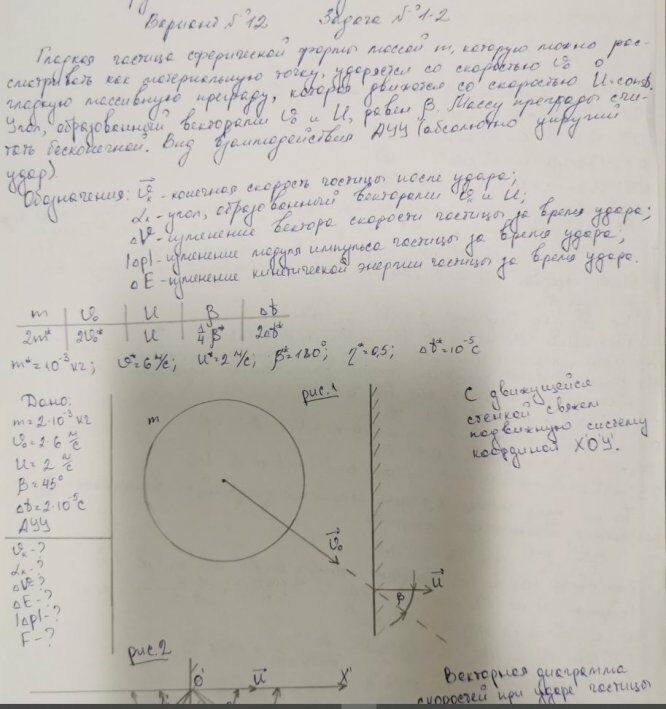 Вариант №12 Задача №1-2
Гладкая частица сферической формы массой m, которую можно рас-
сматривать как материальную точку, ударяется со скоростью V⃗₀ о
гладкую массивную преграду, которая движется со скоростью U⃗=const.
Угол, образованный векторами V⃗₀ и U⃗, равен β. Массу преграды счи-
тать бесконечной. Вид взаимодействия АУУ (абсолютно упругий
удар).
Обозначения: V⃗ₖ - конечная скорость частицы после удара;
αₖ - угол, образованный векторами V⃗ₖ и U⃗;
ΔV⃗ - изменение вектора скорости частицы за время удара;
|Δp| - изменение модуля импульса частицы за время удара;
ΔE - изменение кинетической энергии частицы за время удара.
m | V₀ | U | β | Δt
2m* | 2V₀* | U | ¼β* | 2Δt*
m*=10⁻³ кг; V*=6 м/с; U*=2 м/с; β*=180°; η*=0,5; Δt*=10⁻⁵ с
Дано:
m=2·10⁻³ кг
V₀=2·6 м/с
U=2 м/с
β=45°
Δt=2·10⁻⁵ с
АУУ
Vₖ-?
αₖ-?
ΔV-?
ΔE-?
|Δp|-?
F-?
рис.1
m
V⃗₀
U⃗
β
С движущейся
стенкой свяжем
подвижную систему
координат X'O'Y'.
рис.2
O'
U⃗
X'
Векторная диаграмма
скоростей при ударе частицы